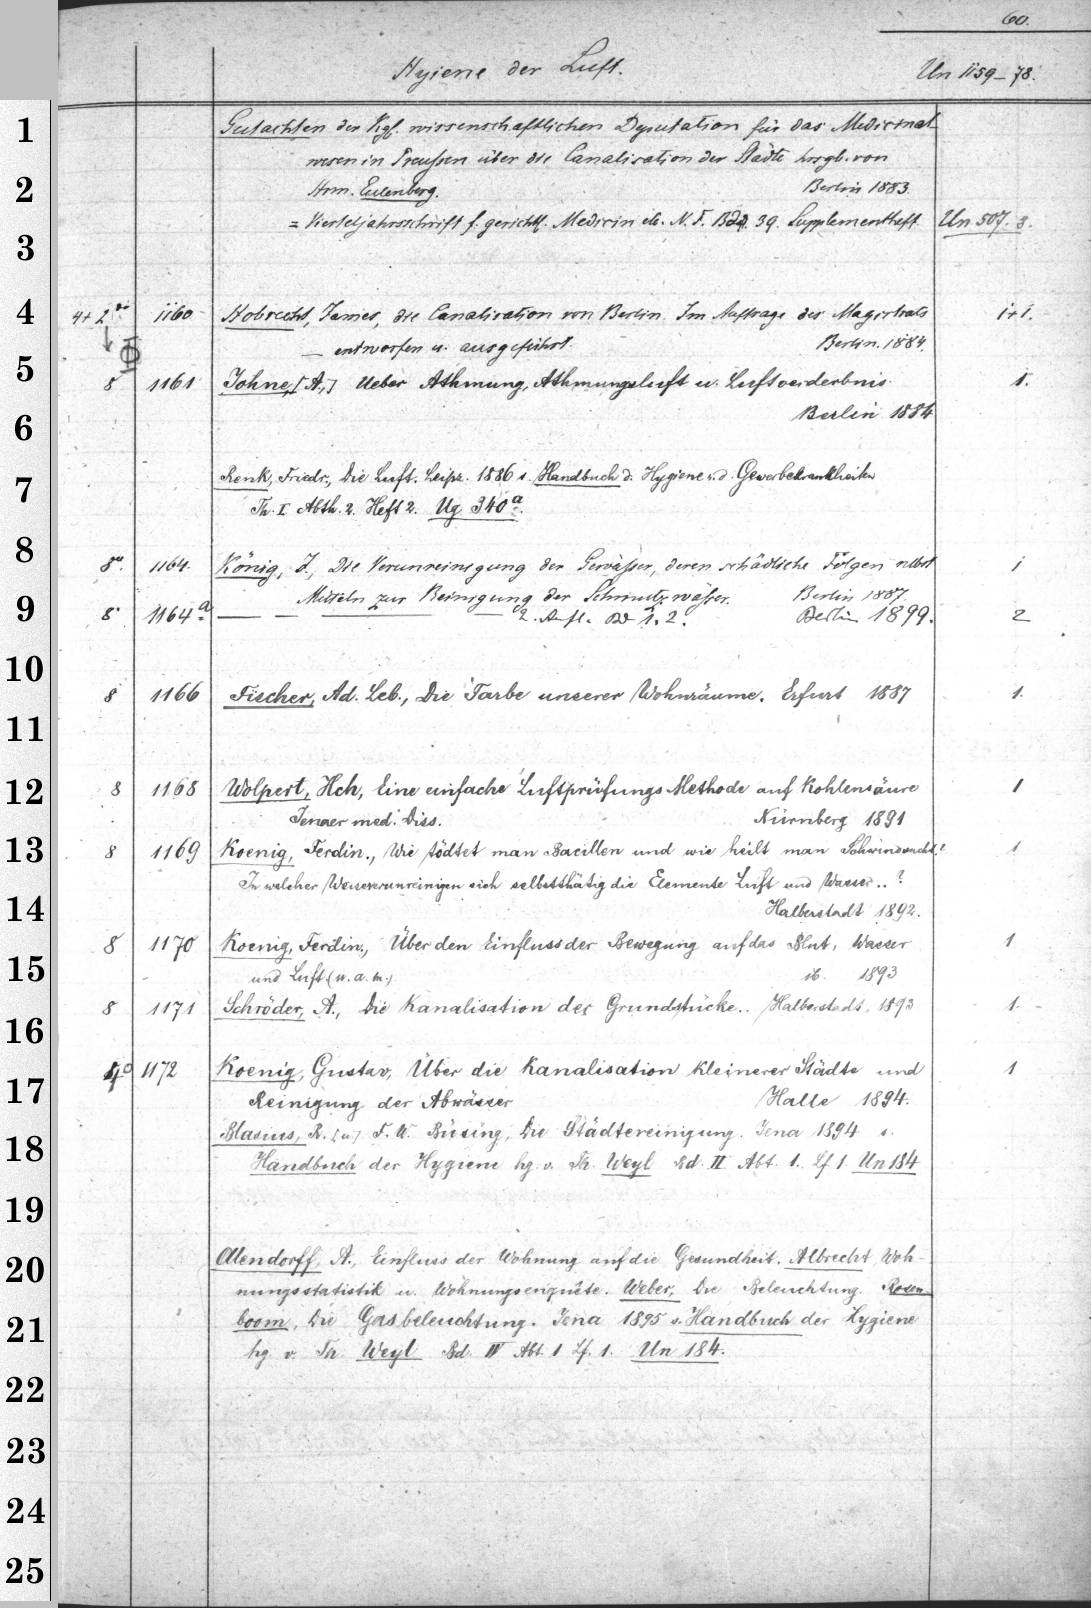 60.
Hygiene der Luft. Un 1159-78.
1 Gutachten der Kgl. wissenschaftlichen Deputation für das Medicinal
wesen in Preussen über die Canalisation der Städte hrsgb. von
2 Herm. Eulenberg. Berlin 1883.
= Vierteljahrsschrift f. gerichtl. Medicin etc. N. F. Bd. 39. Supplementheft Un 507. 8.
3
4 4+2° 1160 Hobrecht, James, die Canalisation von Berlin. Im Auftrage des Magistrats 1+1.
— entworfen u. ausgeführt. Berlin. 1884.
5 8 1161 Johne, [A.,] Ueber Athmung, Athmungsluft u. Luftverderbnis. 1.
6 Berlin 1884
7 Renk, Friedr., Die Luft. Leipz. 1886 s. Handbuch d. Hygiene u. d. Gewerbekrankheiten
Th. I Abth. 2. Heft 2. Ug 340a.
8 8°. 1164. König, J., Die Verunreinigung der Gewässer, deren schädliche Folgen nebst 1
Mitteln zur Reinigung der Schmutzwässer. Berlin 1887.
9 8 1164a — — — 2. Aufl. Bd 1. 2. Berlin 1899. 2
10 8 1166 Fischer, Ad. Leb., Die Farbe unserer Wohnräume. Erfurt 1887 1.
11
12 8 1168 Wolpert, Hch, Eine einfache Luftprüfungs Methode auf Kohlensäure 1
Jenaer med. Diss. Nürnberg 1891
13 8 1169 Koenig, Ferdin., Wie tödtet man Bacillen und wie heilt man Schwindsucht? 1
In welcher Weise verunreinigen sich selbstthätig die Elemente Luft und Wasser..?
14 Halberstadt 1892.
8 1170 Koenig, Ferdin., Über den Einfluss der Bewegung auf das Blut, Wasser 1
15 und Luft (u. a. m.) ib. 1893
16 8 1171 Schröder, A., Die Kanalisation der Grundstücke.. Halberstadt, 1893 1.
17 4° 1172 Koenig, Gustav, Über die Kanalisation kleinerer Städte und 1
Reinigung der Abwässer Halle 1894.
18 Blasius, R. [u.] F. W. Büsing, Die Städtereinigung. Jena 1894 s.
Handbuch der Hygiene hg. v. Th. Weyl Bd. II Abt. 1. Lf 1. Un 184
19
20 Olendorff, A., Einfluss der Wohnung auf die Gesundheit. Albrecht, Woh-
nungsstatistik u. Wohnungsenquête. Weber, Die Beleuchtung. Rosen
21 boom, Die Gasbeleuchtung. Jena 1895 s. Handbuch der Hygiene
hg v. Th. Weyl Bd. IV Abt 1 Lf. 1. Un 184.
22
23
24
25